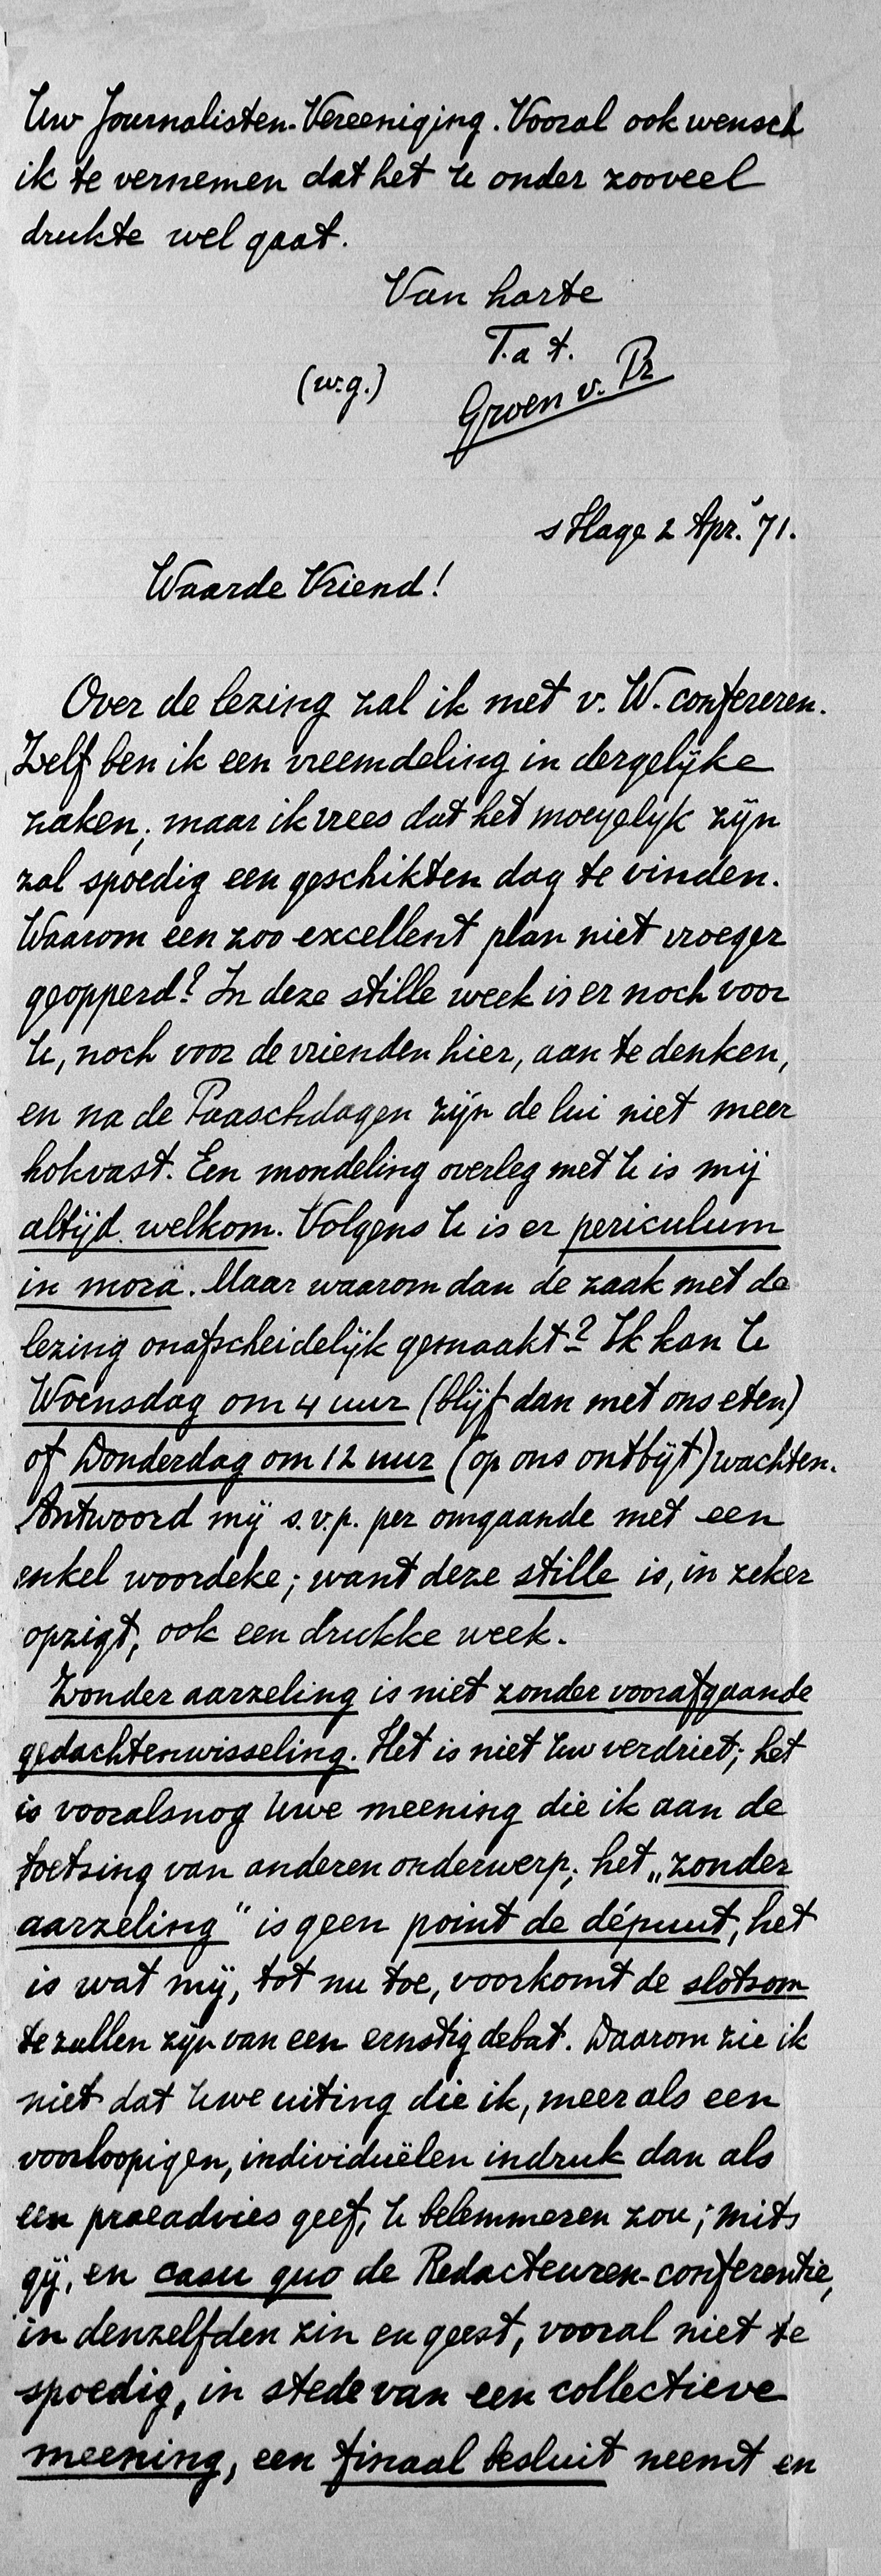 Uw Journalisten-Vereeniging. Vooral ook wensch
ik te vernemen dat het U onder zooveel
drukte wel gaat.
Van harte
T.a t.
(w.g.) Groen v. Pr
s Hage 2 Apr. '71.
Waarde Vriend!
Over de lezing zal ik met v. W. confereren.
Zelf ben ik een vreemdeling in dergelijke
zaken; maar ik vrees dat het moeyelyk zijn
zal spoedig een geschikten dag te vinden.
Waarom een zoo excellent plan niet vroeger
geopperd? In deze stille week is er noch voor
U, noch voor de vrienden hier, aan te denken,
en na de Paaschdagen zijn de lui niet meer
hokvast. Een mondeling overleg met U is mij
altijd welkom. Volgens U is er periculum
in mora. Maar waarom dan de zaak met de
lezing onafscheidelijk gemaakt? Ik kan U
Woensdag om 4 uur (blijf dan met ons eten)
of Donderdag om 12 uur (op ons ontbijt) wachten.
Antwoord mij s.v.p. per omgaande met een
enkel woordeke; want deze stille is, in zeker
opzigt, ook een drukke week.
Zonder aarzeling is niet zonder voorafgaande
gedachtenwisseling. Het is niet Uw verdriet; het
is vooralsnog Uwe meening die ik aan de
toetsing van anderen onderwerp; het „zonder
aarzeling" is geen point de départ, het
is wat mij, tot nu toe, voorkomt de slotsom
te zullen zijn van een ernstig debat. Daarom zie ik
niet dat Uwe uiting die ik, meer als een
voorloopigen, individuëlen indruk dan als
een praeadvies geef, U belemmeren zou; mits
gij, en casu quo de Redacteuren-conferentie,
in denzelfden zin en geest, vooral niet te
spoedig, in stede van een collectieve
meening, een finaal besluit neemt en